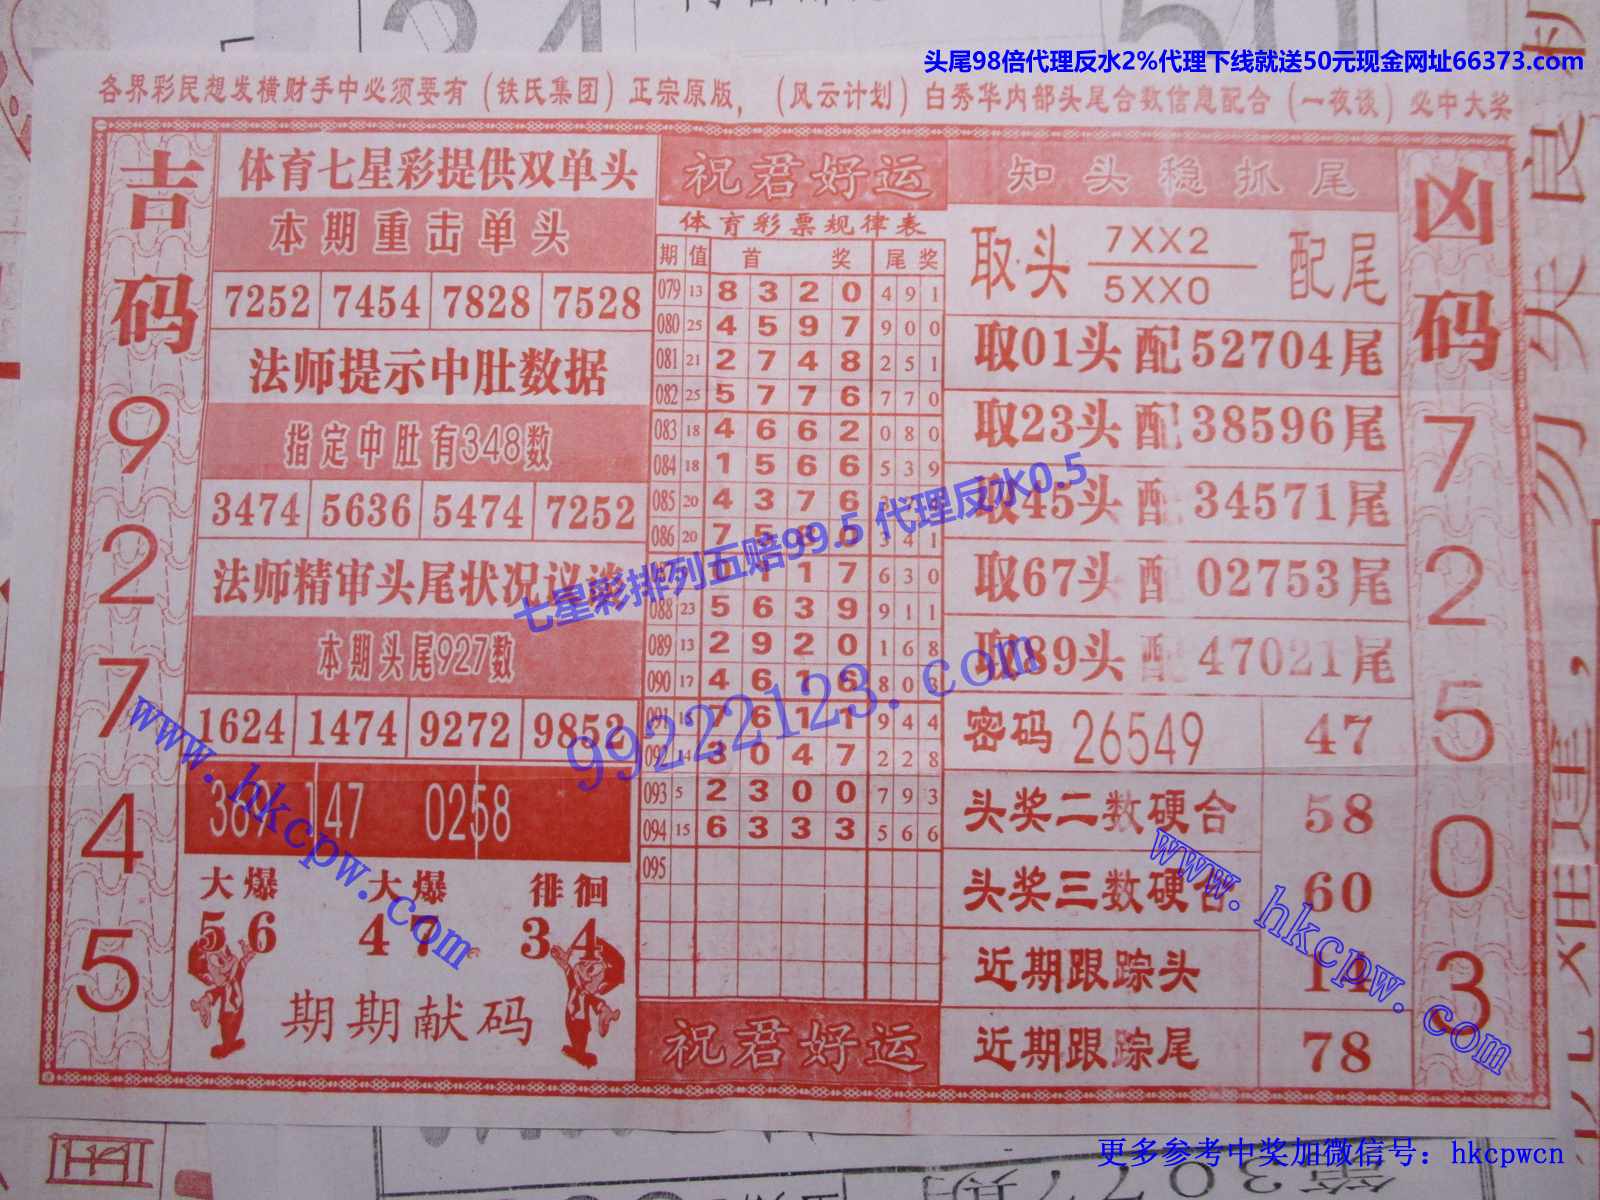 头尾98倍代理反水2%代理下线就送50元现金网址66373.com
各界彩民想发横财手中必须要有（铁氏集团）正宗原版，（风云计划）白秀华内部头尾合数信息配合（一夜谈）必中大奖
吉码
9
2
7
4
5
体育七星彩提供双单头
本期重击单头
7252 7454 7828 7528
法师提示中肚数据
指定中肚有348数
3474 5636 5474 7252
法师精审头尾状况议谈
本期头尾927数
1624 1474 9272 9852
369 147 0258
大爆 大爆 徘徊
56 47 34
期期献码
祝君好运
体育彩票规律表
期 值 首 奖 尾 奖
079 13 8 3 2 0 4 9 1
080 25 4 5 9 7 9 0 0
081 21 2 7 4 8 2 5 1
082 25 5 7 7 6 7 7 0
083 18 4 6 6 2 0 8 0
084 18 1 5 6 6 5 3 9
085 20 4 3 7 6
086 20 7 5 8 0 3 4 1
1 7 6 3 0
088 23 5 6 3 9 9 1 1
089 13 2 9 2 0 1 6 8
090 17 4 6 1 6 8 0
091 15 7 6 1 1 9 4 4
092 14 3 0 4 7 2 2 8
093 5 2 3 0 0 7 9 3
094 15 6 3 3 3 5 6 6
095
祝君好运
知头稳抓尾
取头 7XX2 配尾
5XX0
取01头配52704尾
取23头配38596尾
取45头配34571尾
取67头配02753尾
取89头配47021尾
密码 26549 47
头奖二数硬合 58
头奖三数硬合 60
近期跟踪头 14
近期跟踪尾 78
凶码
7
2
5
0
3
七星彩排列五赔99.5 代理反水0.5
99222123.com
www.hkcpw.com
www.hkcpw.com
更多参考中奖加微信号：hkcpwcn